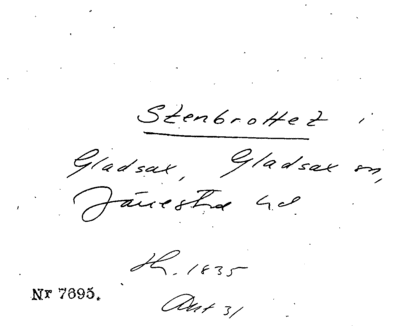 Stenbrottet i
Gladsax, Gladsax sn,
Järrestad hd.
Nr 7695.
1835
31